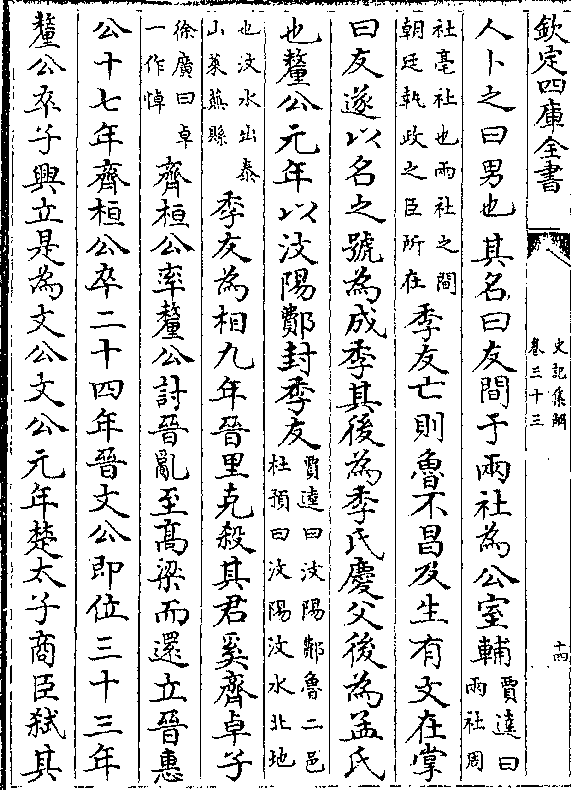 欽定四庫全書
史記集解
卷三十三
十四
人卜之曰男也其名曰友間于兩社為公室輔賈逵曰兩社周
社亳社也兩社之間朝廷執政之臣所在季友亡則魯不昌及生有文在掌
曰友遂以名之號為成季其後為季氏慶父後為孟氏
也釐公元年以汶陽鄪封季友賈逵曰汶陽鄪魯二邑杜預曰汶陽汶水北地
也汶水出泰山萊蕪縣季友為相九年晉里克殺其君奚齊卓子
徐廣曰卓一作悼齊桓公率釐公討晉亂至高梁而還立晉惠
公十七年齊桓公卒二十四年晉文公即位三十三年
釐公卒子興立是為文公文公元年楚太子商臣弒其